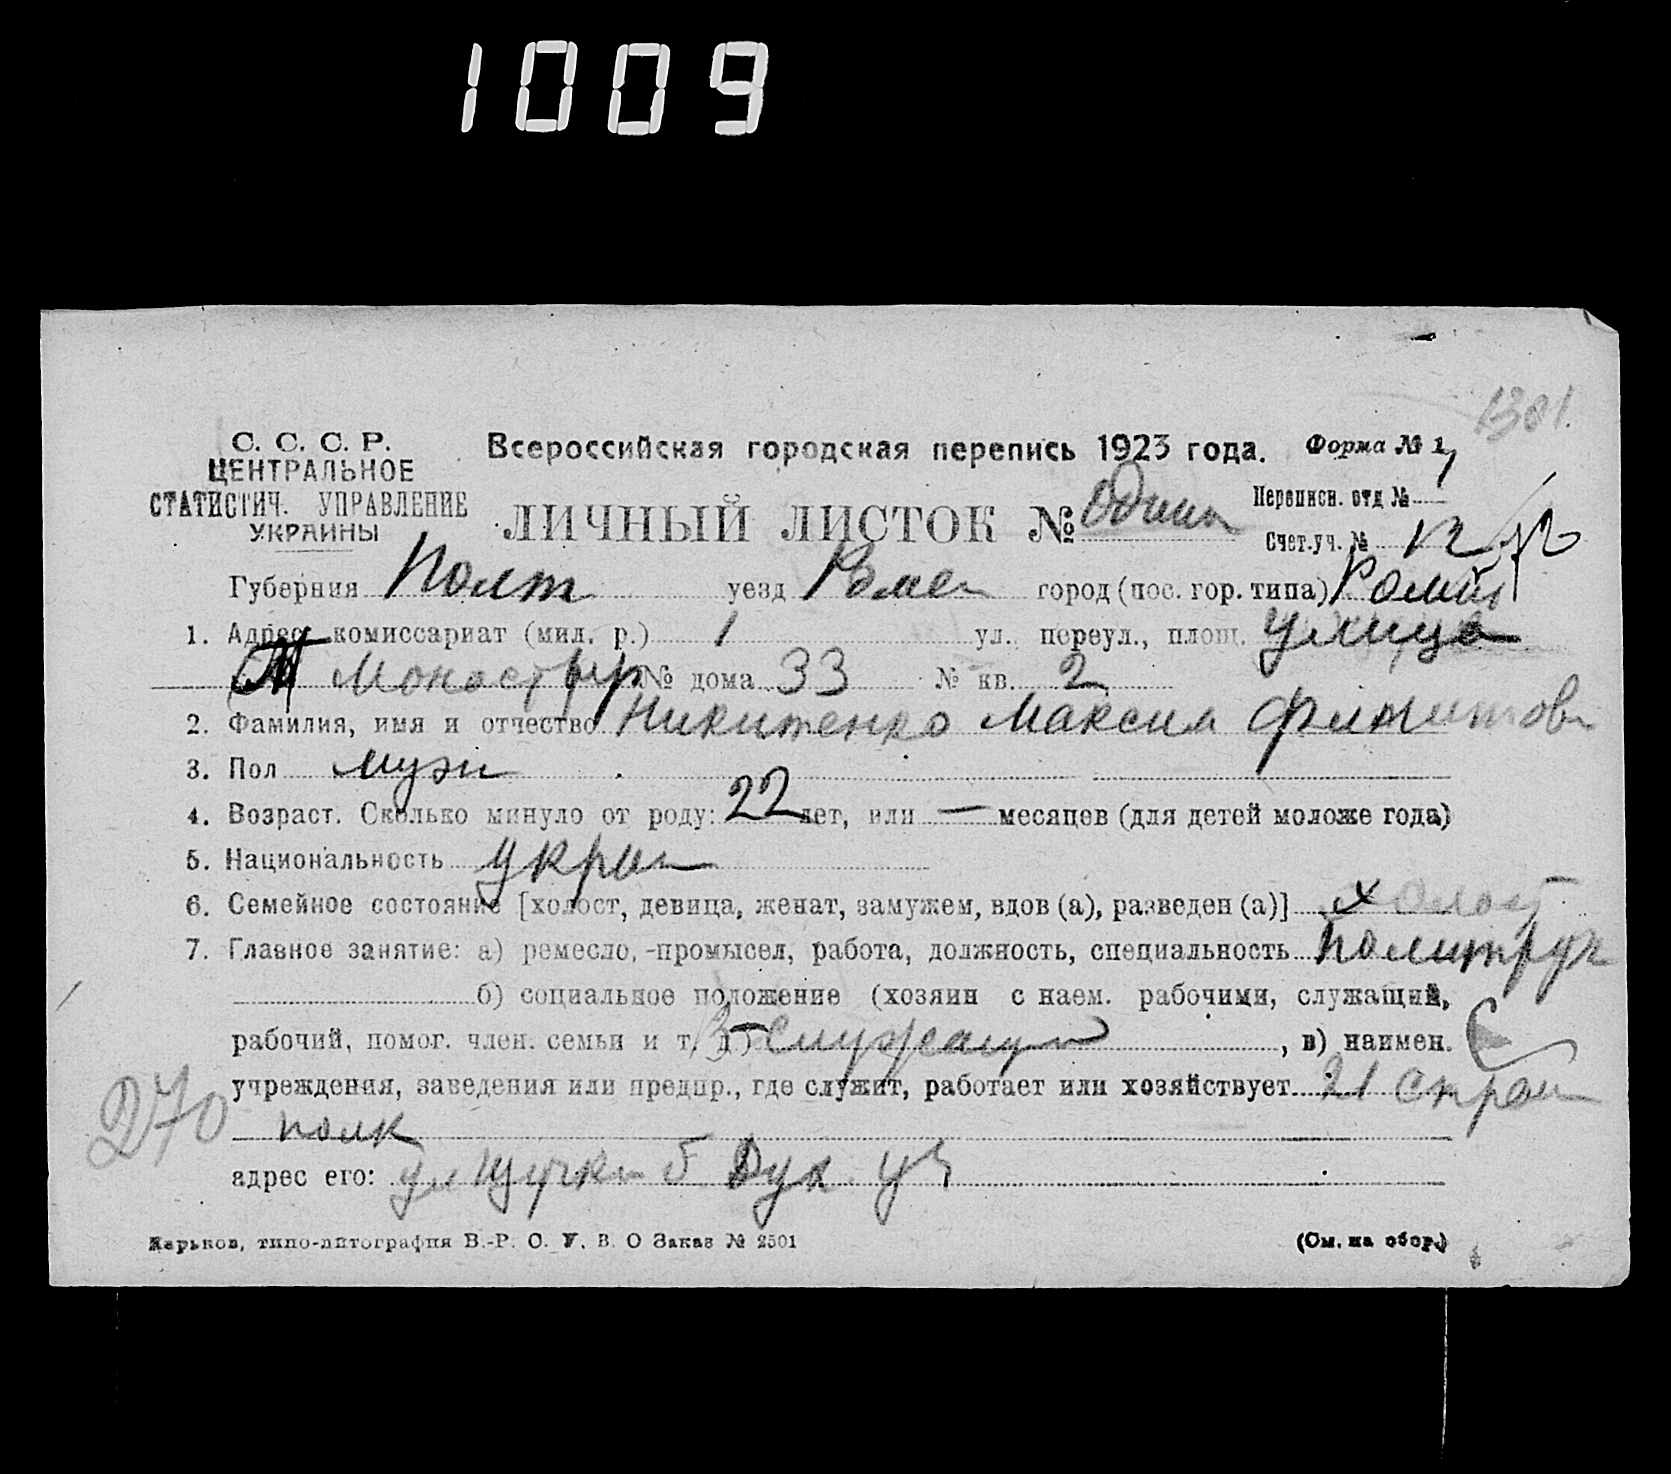 1009
1301.
С. С. С. Р.
ЦЕНТРАЛЬНОЕ
СТАТИСТИЧ. УПРАВЛЕНИЕ
УКРАИНЫ
Всероссийская городская перепись 1923 года.
Форма № 1
ЛИЧНЫЙ ЛИСТОК № один
Переписн. отд № 1
Счет.уч. № 12
Губерния Полт уезд Ромен город (пос. гор. типа) Ромны
1. Адрес комиссариат (мил. р.) 1 ул. переул., площ. улица
Монастыр № дома 33 № кв. 2
2. Фамилия, имя и отчество Никитенко Максим
3. Пол муж
4. Возраст. Сколько минуло от роду: 22 лет, или — месяцев (для детей моложе года)
5. Национальность украи
6. Семейное состояние [холост, девица, женат, замужем, вдов (а), разведен (а)] холост
7. Главное занятие: а) ремесло, -промысел, работа, должность, специальность Политрук
б) социальное положение (хозяин с наем. рабочими, служащий,
рабочий, помог. член. семьи и т. д.) служащи, в) наимен.
учреждения, заведения или предпр., где служит, работает или хозяйствует 21 Стрел
полк
270
адрес его: ул Щучки б Дух. уч
Харьков, типо-литография В.-Р. О. У. В. О Заказ № 2501
(См. на обор.)